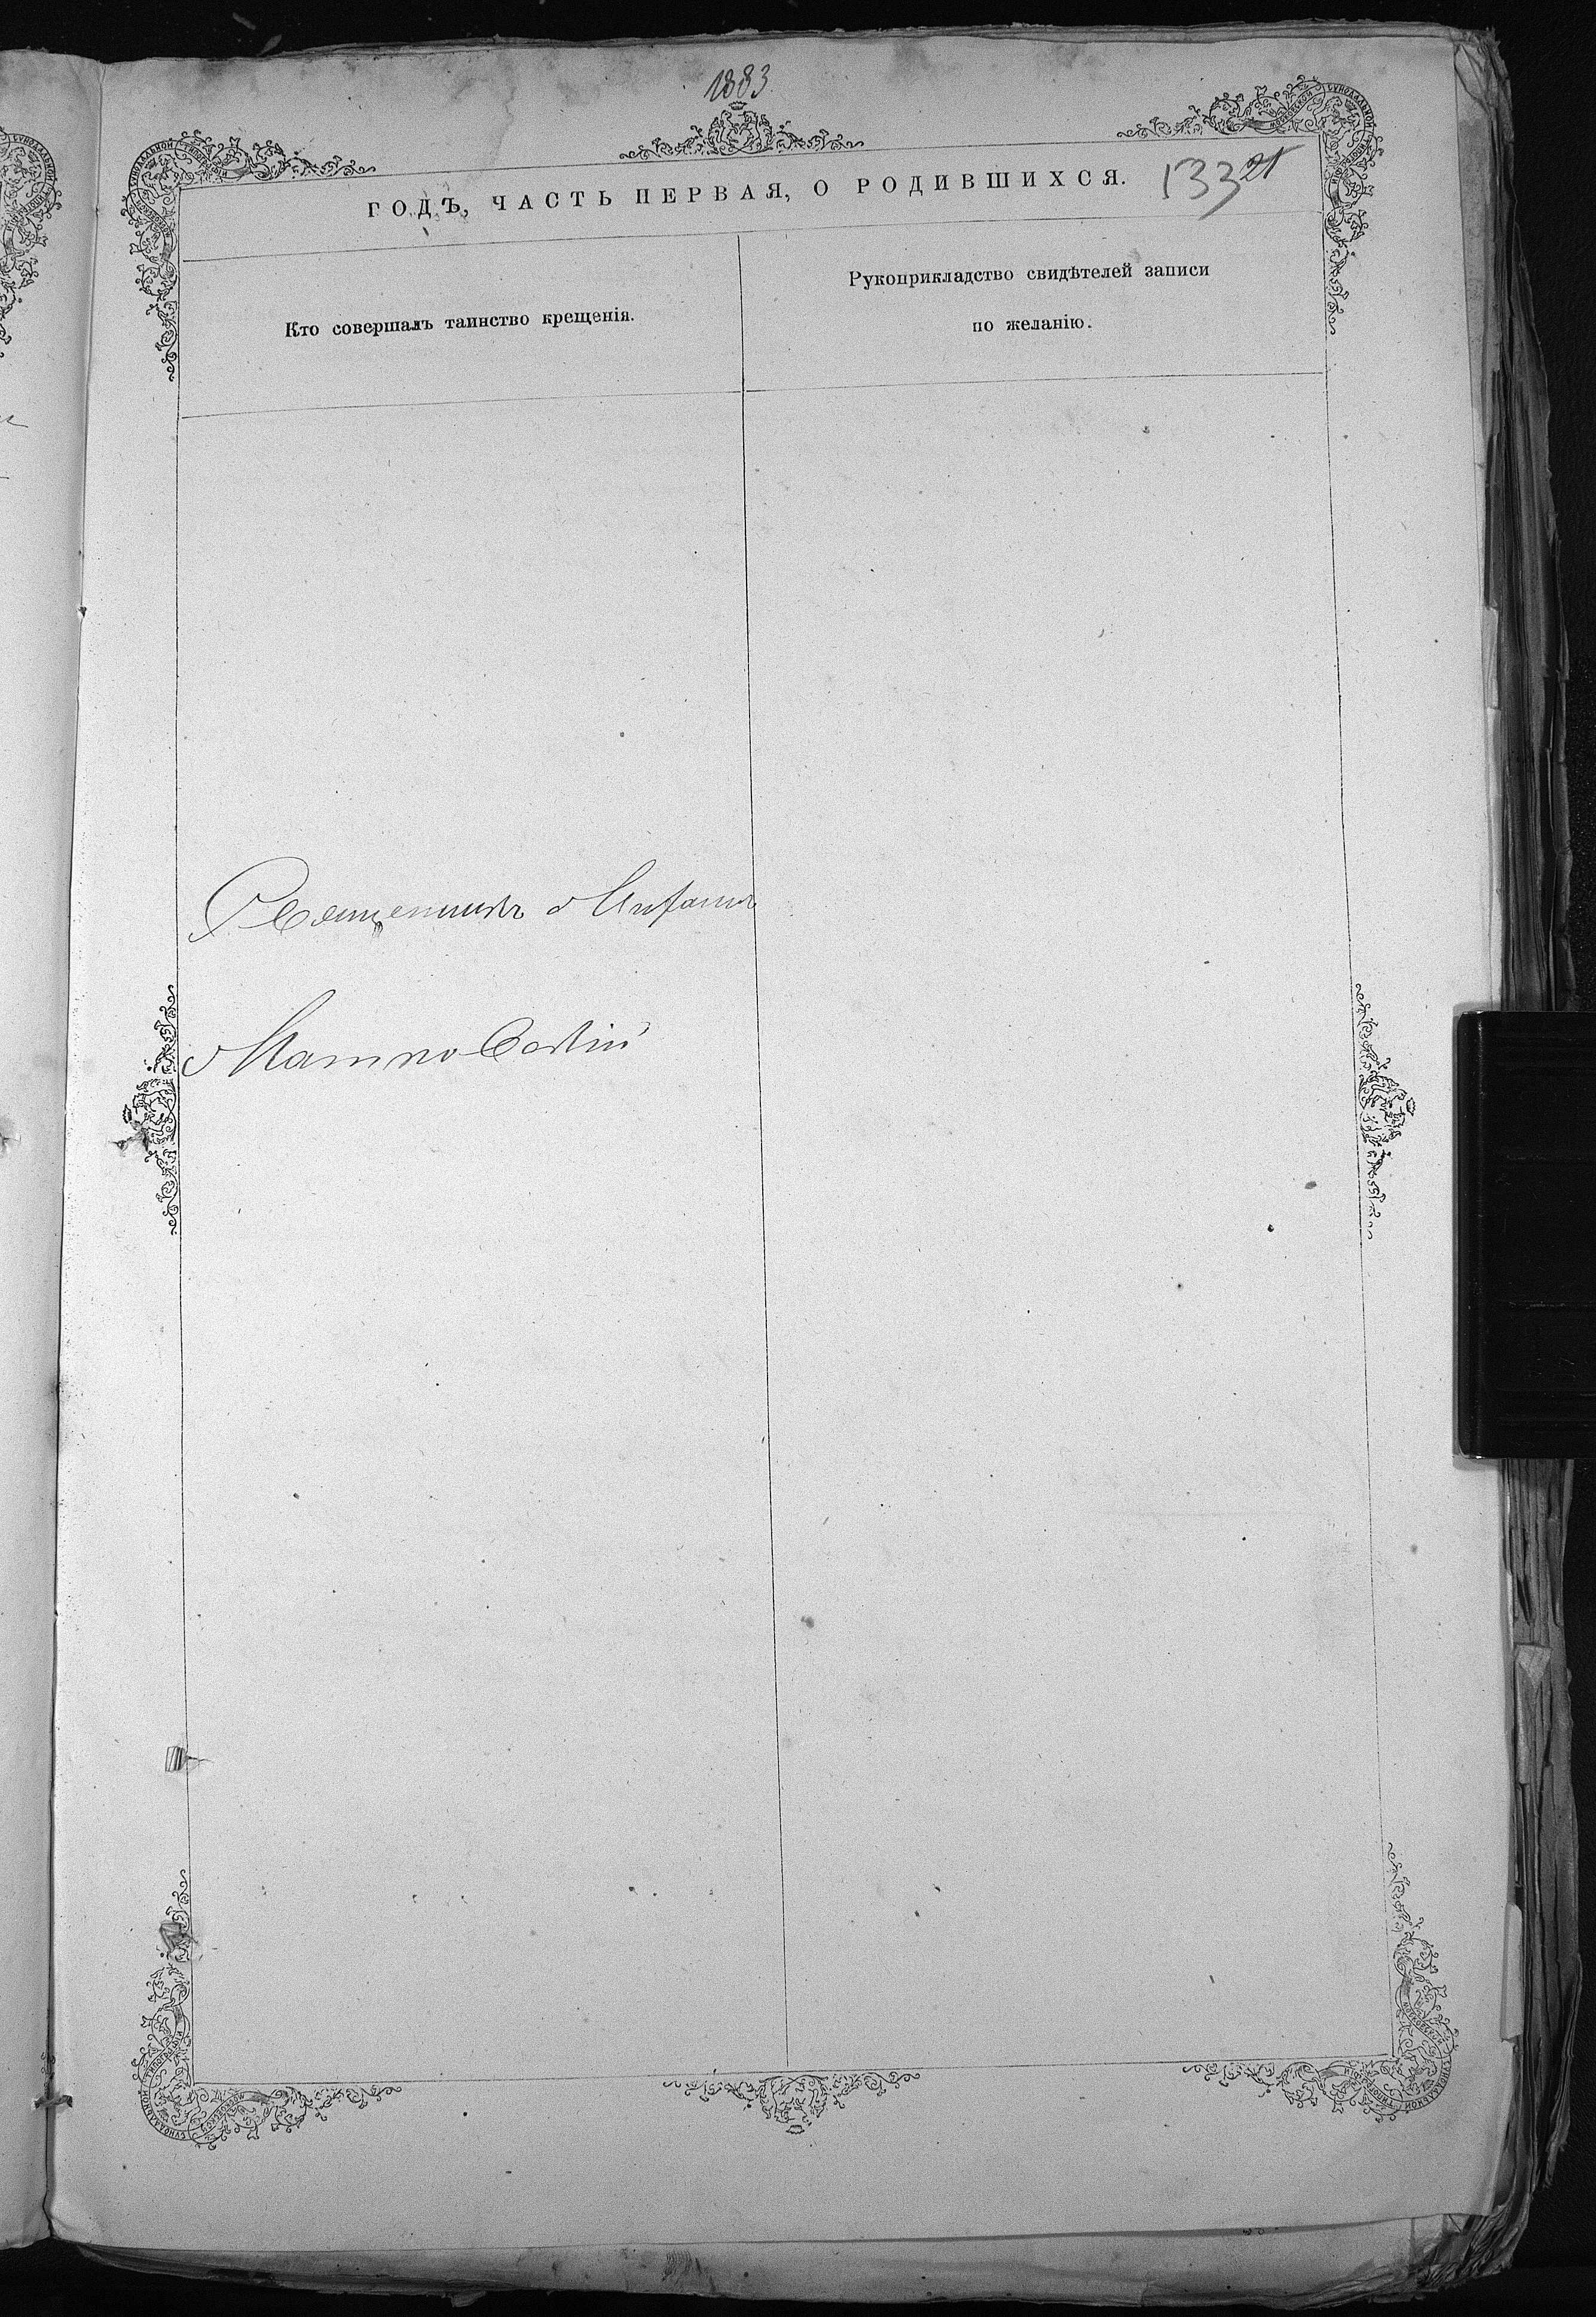 1883.
ГОДЪ, ЧАСТЬ ПЕРВАЯ, О РОДИВШИХСЯ.
133 21
Кто совершалъ таинство крещенія.
Рукоприкладство свидѣтелей записи
по желанію.
Священникъ